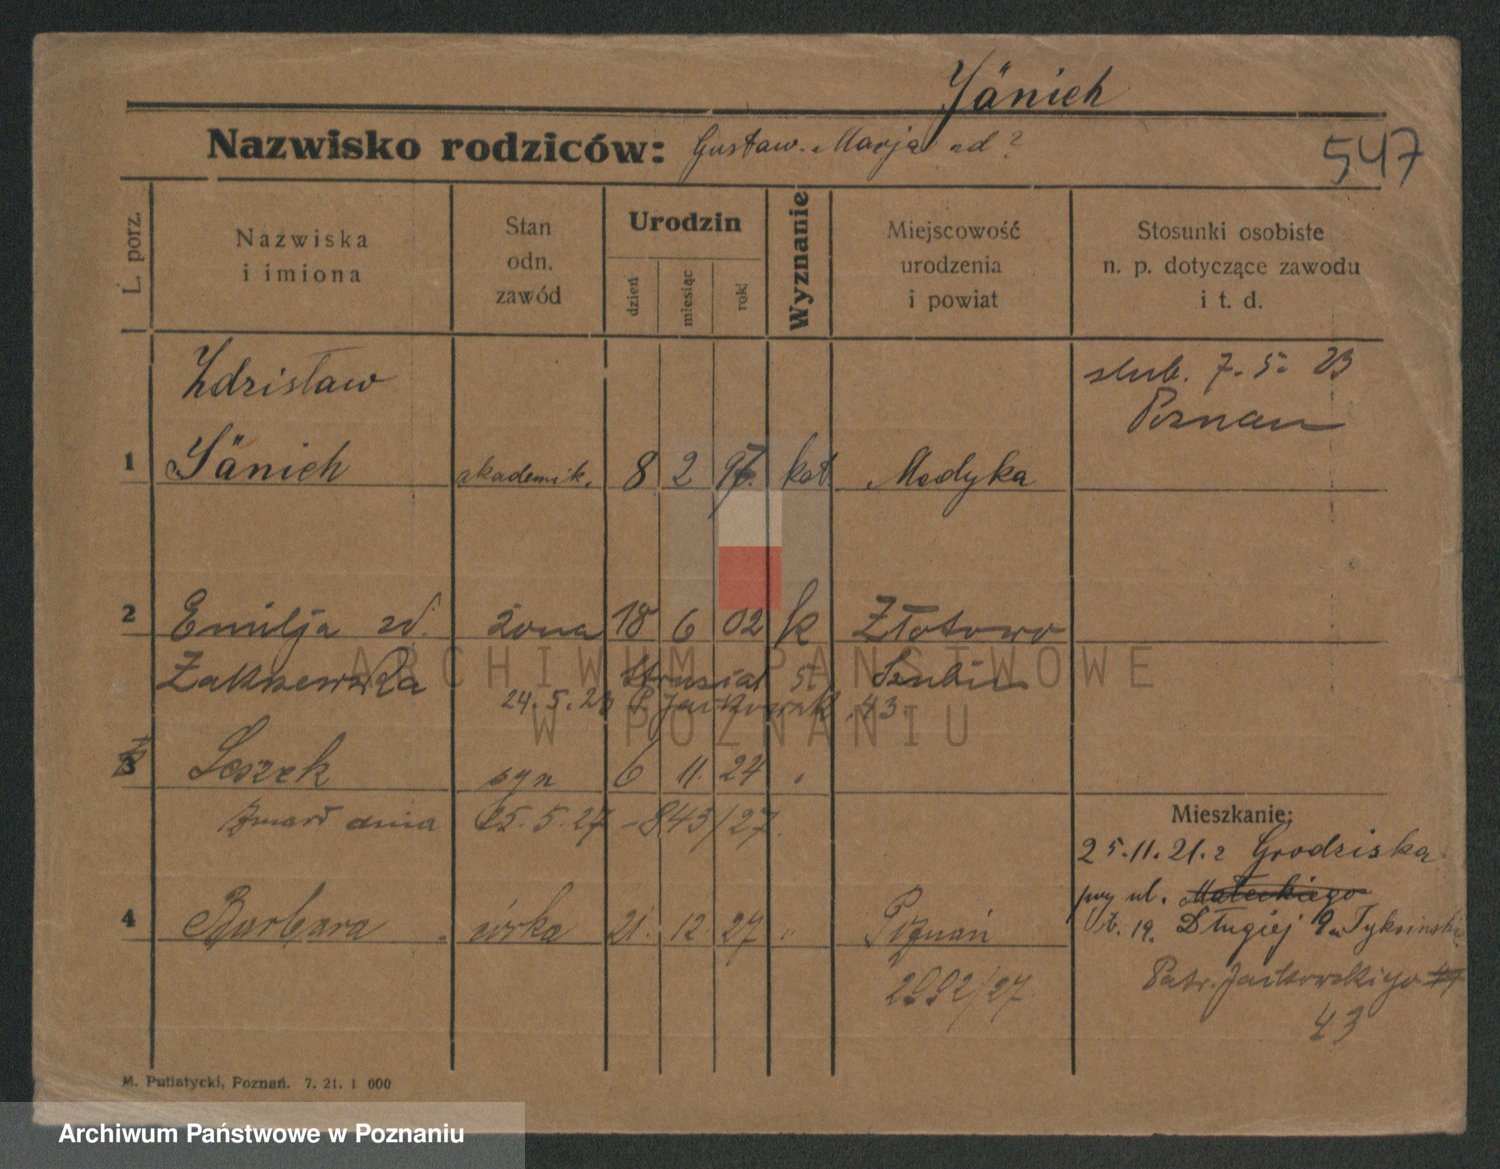 Jänich
Nazwisko rodziców: Gustaw. Marja zd ?
547
L. porz.
Nazwiska
i imiona
Stan
odn.
zawód
Urodzin
dzień
miesiąc
rok
Wyznanie
Miejscowość
urodzenia
i powiat
Stosunki osobiste
n. p. dotyczące zawodu
i t. d.
Zdzisław
ślub. 7. 5. 23
Poznań
1 Jänich akademik. 8 2 97. kat Medyka
2 Emilja zd. żona 18 6 02 k Złotowo
Zakrzewska Szubin
24. 5. 28 P. Jackowsk. 43.
3 Leszek syn 6 11. 24
Zmarł dnia 25. 5. 27 - 843/27.
Mieszkanie:
25. 11. 21. z Grodziska
przy ul. Małeckiego
19. Długiej 9
4 Barbara córka 21. 12. 27 " Poznań
Patr. Jackowskiego
2992/27.
43
M. Putiatycki, Poznań. 7. 21. 1 000
ARCHIWUM PAŃSTWOWE
W POZNANIU
Archiwum Państwowe w Poznaniu